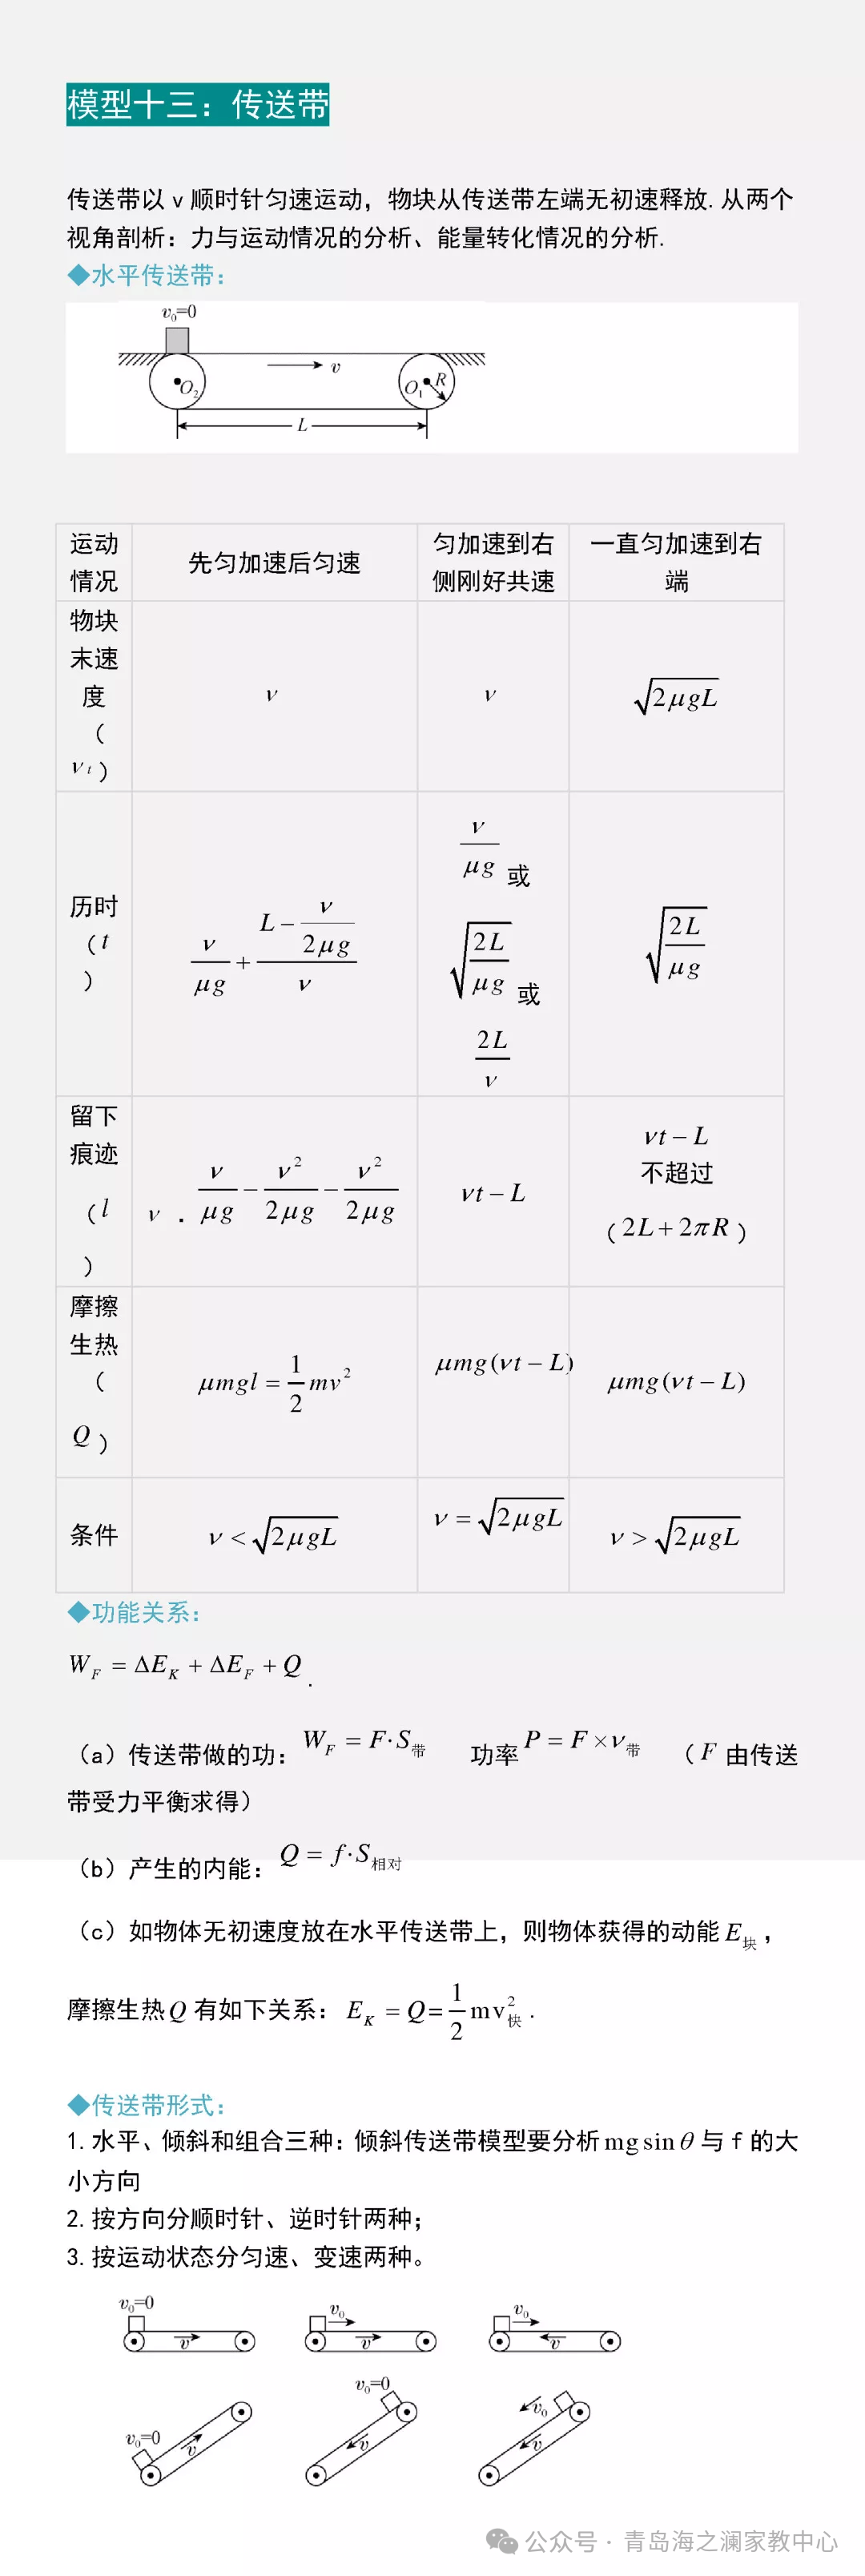 模型十三：传送带
传送带以 v 顺时针匀速运动，物块从传送带左端无初速释放. 从两个
视角剖析：力与运动情况的分析、能量转化情况的分析.
◆水平传送带：
v₀=0
v
O₂
O₁
R
L
运动
情况
先匀加速后匀速
匀加速到右
侧刚好共速
一直匀加速到右
端
物块
末速
度
（
v t ）
v
v
√(2μgL)
历时
（t
）
v/(μg) + (L − v/(2μg))/v
v/(μg) 或
√(2L/(μg)) 或
2L/v
√(2L/(μg))
留下
痕迹
（l
）
v . v/(μg) − v²/(2μg) − v²/(2μg)
vt − L
vt − L
不超过
（2L + 2πR）
摩擦
生热
（
Q ）
μmgl = 1/2 mv²
μmg(vt − L)
μmg(vt − L)
条件
v < √(2μgL)
v = √(2μgL)
v > √(2μgL)
◆功能关系：
W_F = ΔE_K + ΔE_F + Q .
（a）传送带做的功：W_F = F·S带 功率 P = F × v带 （F 由传送
带受力平衡求得）
（b）产生的内能：Q = f·S相对
（c）如物体无初速度放在水平传送带上，则物体获得的动能 E块，
摩擦生热 Q 有如下关系：E_K = Q = 1/2 mv²快 .
◆传送带形式：
1. 水平、倾斜和组合三种：倾斜传送带模型要分析 mg sin θ 与 f 的大
小方向
2. 按方向分顺时针、逆时针两种；
3. 按运动状态分匀速、变速两种。
v₀=0
v
v₀
v
v₀
v
v₀=0
v
v₀=0
v
v₀
v
公众号 · 青岛海之澜家教中心